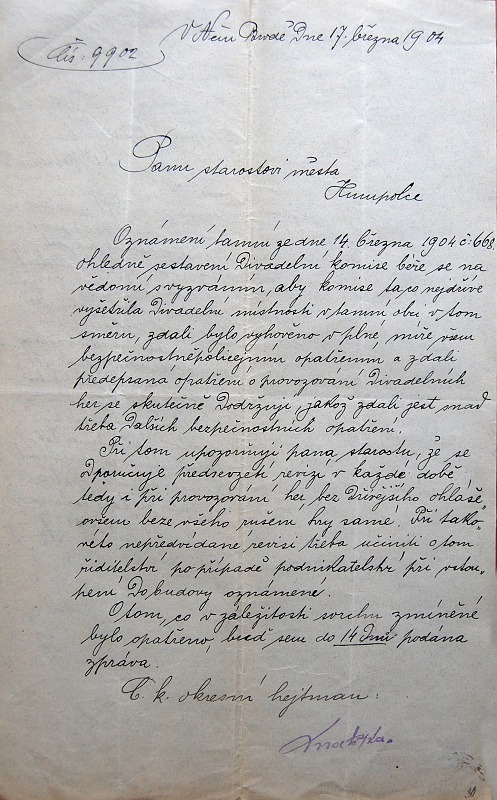 V Něm Brodě Dne 17. března 1904
Čís. 9902
Panu starostovi města
Humpolce
Oznámení tamní ze dne 14. března 1904 č. 668.
ohledně sestavení Divadelní komise béře se na
vědomí s vyzváním, aby komise ta, co nejdříve
vyšetřila Divadelní místnosti v tamní obci v tom
směru, zdali bylo vyhověno v plné míře všem
bezpečnostněpolicejním opatřením a zdali
předepsaná opatření o provozování Divadelních
her se skutečně Dodržují, jakož zdali jest snad
třeba Dalších bezpečnostních opatření.
Při tom upozorňuji pana starostu, že se
odporučuje předsevzetí revizí v každé době
tedy i při provozování her bez Dřívějšího ohláše„
ovšem beze všeho rušení hry samé. Při tako„
véto nepředvídané revisi třeba učiniti o tom
řiditelství po případě podnikatelství při vstou„
pení Do budovy oznámení.
O tom, co v záležitosti svrchu zmíněné
bylo opatřeno, buď sem do 14 Dnů podána
zpráva.
C. k. okresní hejtman:
30